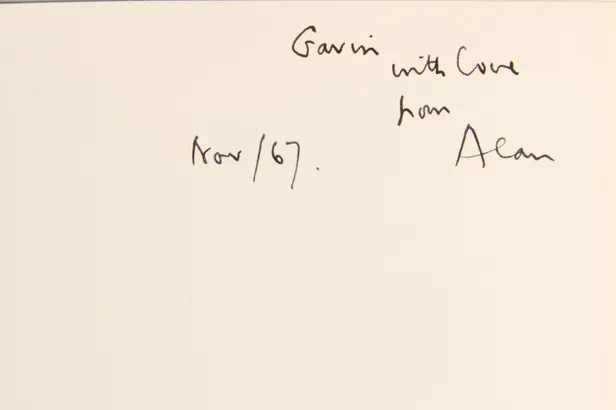 Gavin
with love
from
Alan
Nov/67.